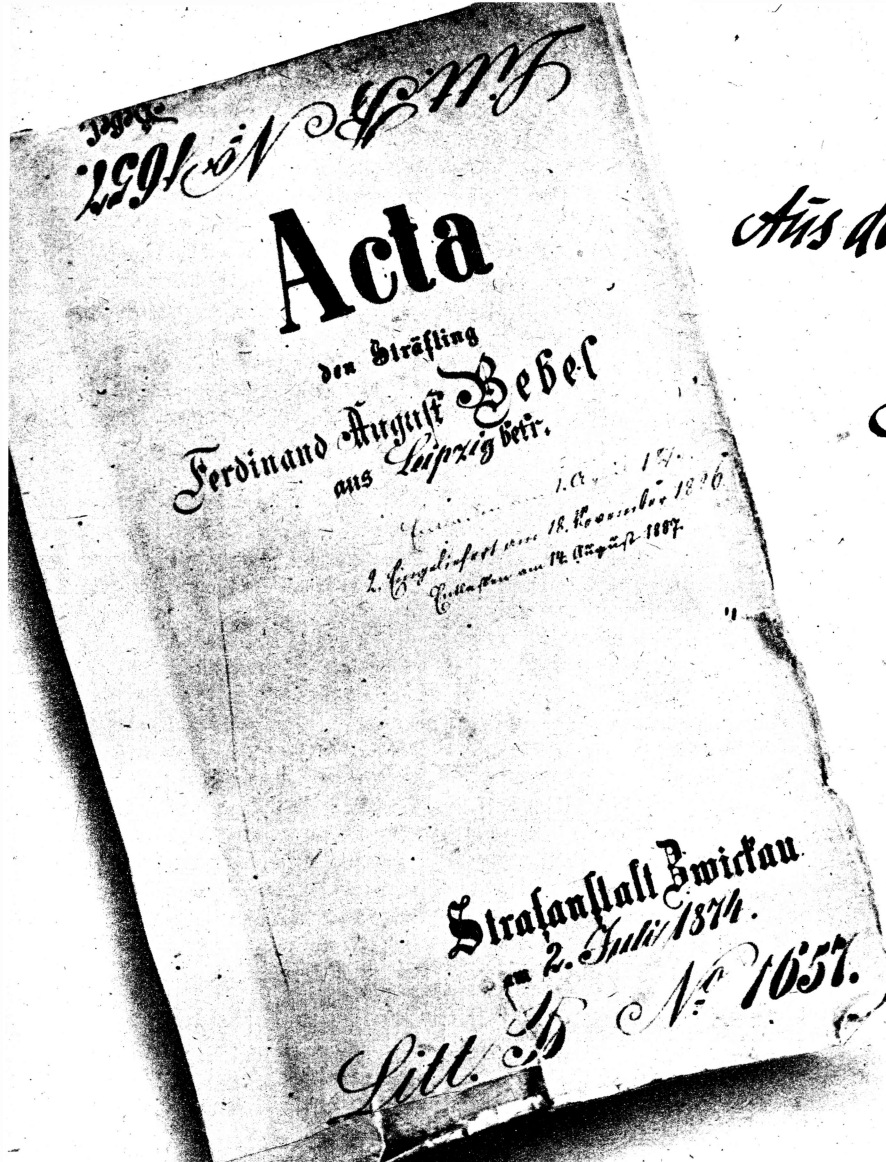 Litt. B No 1657.
Bebel.
Acta
den Sträfling
Ferdinand August Bebel
aus Leipzig betr.
Entlassen am 1. April 187
2. Eingeliefert am 18. November 1886
Entlassen am 14. August 1887.
Strafanstalt Zwickau
am 2. Juli 1874.
Litt. B No 1657.
Aus de